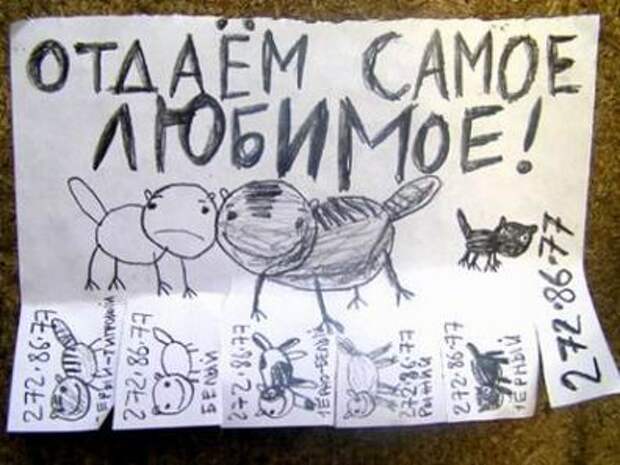 ОТДАЁМ САМОЕ
ЛЮБИМОЕ!
272·86·77
272·86·77
272·86·77
БЕЛЫЙ
272·86·77
ЧЁРНО-БЕЛЫЙ
272·86·77
РЫЖИЙ
272·86·77
ЧЁРНЫЙ